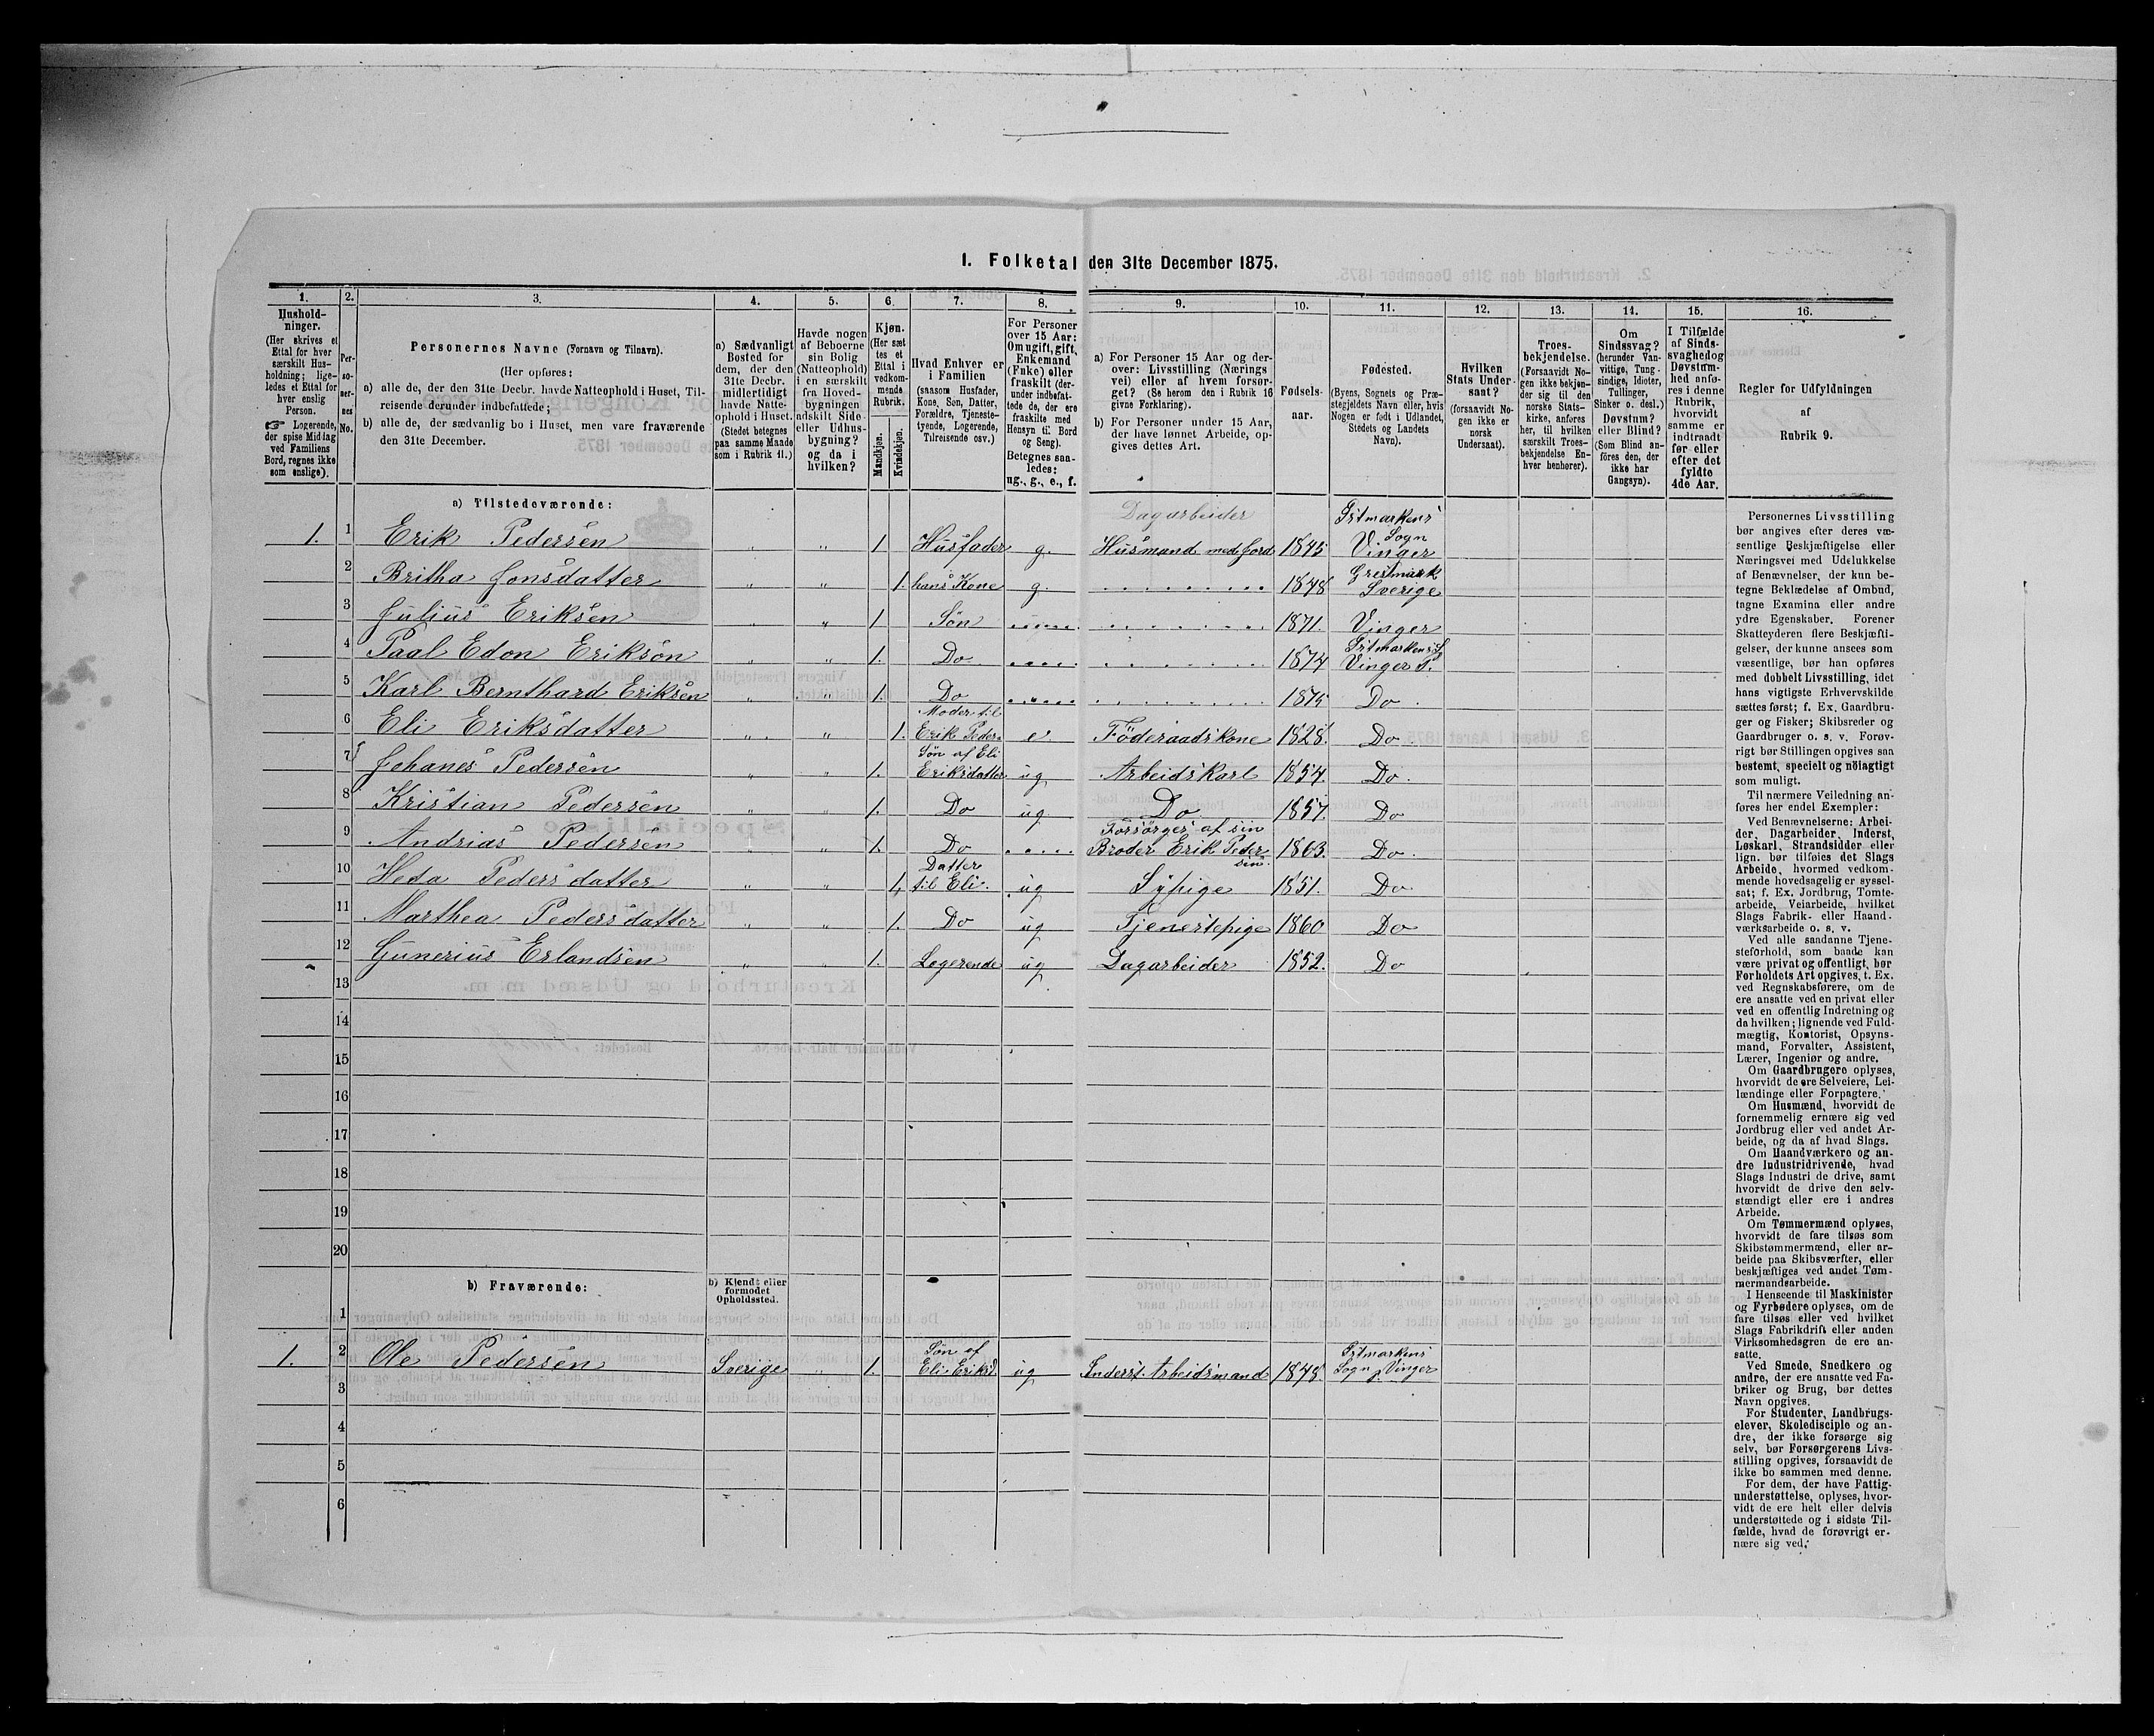 I. Folketal den 31te December 1875.
1.
Hushold-
ninger.
(Her skrives et
Ettal for hver
særskilt Hus-
holdning; lige-
ledes et Ettal for
hver enslig
Person.
☞ Logerende,
der spise Middag
ved Familiens
Bord, regnes ikke
som enslige).
2.
Per-
so-
ner-
nes
No.
3.
Personernes Navne (Fornavn og Tilnavn).
(Her opføres:
a) alle de, der den 31te Decbr. havde Natteophold i Huset, Til-
reisende derunder indbefattede;
b) alle de, der sædvanlig bo i Huset, men vare fraværende
den 31te December.
4.
a) Sædvanligt
Bosted for
dem, der den
31te Decbr.
midlertidigt
havde Natte-
ophold i Huset.
(Stedet betegnes
paa samme Maade
som i Rubrik 11.)
5.
Havde nogen
af Beboerne
sin Bolig
(Natteophold)
i en særskilt
fra Hoved-
bygningen
adskilt Side-
eller Udhus-
bygning?
og da i
hvilken?
6.
Kjøn.
(Her sæt
tes et
Ettal i
vedkom-
mende
Rubrik.
Mandkjøn.
Kvindekjøn.
7.
Hvad Enhver er
i Familien
(saasom Husfader,
Kone, Søn, Datter,
Forældre, Tjeneste-
tyende, Logerende,
Tilreisende osv.)
8.
For Personer
over 15 Aar:
Om ugift, gift,
Enkemand
(Enke) eller
fraskilt (der-
under indbefat-
tede de, der ere
fraskilte med
Hensyn til Bord
og Seng).
Betegnes saa-
ledes:
ug., g., e., f.
9.
a) For Personer 15 Aar og der-
over: Livsstilling (Nærings
vei) eller af hvem forsør-
get? (Se herom den i Rubrik 16
givne Forklaring).
b) For Personer under 15 Aar,
der have lønnet Arbeide, op-
gives dettes Art.
10.
Fødsels-
aar.
11.
Fødested.
(Byens, Sognets og Præ-
stegjeldets Navn eller, hvis
Nogen er født i Udlandet,
Stedets og Landets
Navn).
12.
Hvilken
Stats Under-
saat?
(forsaavidt No-
gen ikke er
norsk
Undersaat).
13.
Troes-
bekjendelse.
(Forsaavidt No-
gen ikke bekjen-
der sig til den
norske Stats-
kirke, anføres
her, til hvilken
særskilt Troes-
bekjendelse En-
hver henhører).
14.
Om
Sindssvag?
(herunder Van-
vittige, Tung-
sindige, Idioter,
Tullinger,
Sinker o. desl.)
Døvstum?
eller Blind?
(Som Blind an-
føres den, der
ikke har
Gangsyn).
15.
I Tilfælde
af Sinds-
svaghed og
Døvstum-
hed anfø-
res i denne
Rubrik,
hvorvidt
samme er
indtraadt
før eller
efter det
fyldte
4de Aar.
16.
Regler for Udfyldningen
af
Rubrik 9.
a) Tilstedeværende:
Dagarbeider Istmarkens
1. 1 Erik Pedersen " " 1 Husfader g. Husmand med Jord 1845 Sogn Vinger
2 Britha Jonsdatter " " 1. hans Kone g. 1848 Sverige
3 Julius Eriksen " " 1 Søn 1871. Vinger
4 Paal Edon Eriksøn " " 1. Do 1874 Istmarkens S. Vinger P.
5 Karl Bernthard Eriksen " " 1. Do 1875 Do.
6 Eli Eriksdatter " " 1. Moder til Erik Peders e Föderaadskone 1828. Do
7 Johanes Pedersen " " 1. Søn af Eli Eriksdatter ug Arbeidskarl 1854. Do.
8 Kristian Pedersen " " 1. Do ug Do 1857. Do
9 Andrias Pedersen " " 1. Do Forsörges af sin Broder Erik Pedersen. 1863. Do.
10 Heda Pedersdatter " " 1. Datter til Eli. ug Sypige 1851. Do
11 Marthea Pedersdatter " " 1. Do ug Tjenestepige 1860 Do
12 Gunerius Erlandsen " " 1. Logerende ug Dagarbeider 1852. Do
13
14
15
16
17
18
19
20
b) Fraværende:
b) Kjendt eller
formodet
Opholdssted.
1
1. 2 Ole Pedersen Sverige " 1. Søn af Eli Eriksd. ug Inderst. Arbeidsmand 1848 Istmarkens Sogn Vinger
3
4
5
6
Personernes Livsstilling
bør angives efter deres væ-
sentlige Beskjæftigelse eller
Næringsvei med Udelukkelse
af Benævnelser, der kun be-
tegne Beklædelse af Ombud,
tagne Examina eller andre
ydre Egenskaber. Forener
Skatteyderen flere Beskjæfti-
gelser, der kunne ansees som
væsentlige, bør han opføres
med dobbelt Livsstilling, idet
hans vigtigste Erhvervskilde
sættes først; f. Ex. Gaardbru-
ger og Fisker; Skibsreder og
Gaardbruger o. s. v. Forøv-
rigt bør Stillingen opgives saa
bestemt, specielt og nöiagtigt
som muligt.
Til nærmere Veiledning an-
føres her endel Exempler:
Ved Benævnelserne: Arbei-
der, Dagarbeider, Inderst,
Løskarl, Strandsidder eller
lign. bør tilføies det Slags
Arbeide, hvormed vedkom-
mende hovedsagelig er syssel-
sat; f. Ex. Jordbrug, Tomte-
arbeide, Veiarbeide, hvilket
Slags Fabrik- eller Haand-
værksarbeide o. s. v.
Ved alle saadanne Tjene-
steforhold, som baade kan
være privat og offentligt, bør
Forholdets Art opgives, t. Ex.
ved Regnskabsførere, om de
ere ansatte ved en privat eller
ved en offentlig Indretning og
da hvilken; lignende ved Fuld-
mægtig, Kontorist, Opsyns-
mand, Forvalter, Assistent,
Lærer, Ingeniør og andre.
Om Gaardbrugere oplyses,
hvorvidt de ere Selveiere, Lei-
lændinge eller Forpagtere.
Om Husmænd, hvorvidt de
fornemmelig ernære sig ved
Jordbrug eller ved andet Ar-
beide, og da af hvad Slags.
Om Haandværkere og an-
dre Industridrivende, hvad
Slags Industri de drive, samt
hvorvidt de drive den selv-
stændigt eller ere i andres
Arbeide.
Om Tømmermænd oplyses,
hvorvidt de fare tilsøs som
Skibstømmermænd, eller ar-
beide paa Skibsværfter, eller
beskjæftiges ved andet Tøm-
mermandsarbeide.
I Henseende til Maskinister
og Fyrbødere oplyses, om de
fare tilsøs eller ved hvilket
Slags Fabrikdrift eller anden
Virksomhedsgren de ere an-
satte.
Ved Smede, Snedkere og
andre, der ere ansatte ved Fa-
briker og Brug, bør dettes
Navn opgives.
For Studenter, Landbrugs-
elever, Skoledisciple og an-
dre, der ikke forsørge sig
selv, bør Forsørgerens Livs-
stilling opgives, forsaavidt de
ikke bo sammen med denne.
For dem, der have Fattig-
understøttelse, oplyses, hvor-
vidt de ere helt eller delvis
understøttede og i sidste Til-
fælde, hvad de forøvrigt er-
nære sig ved.